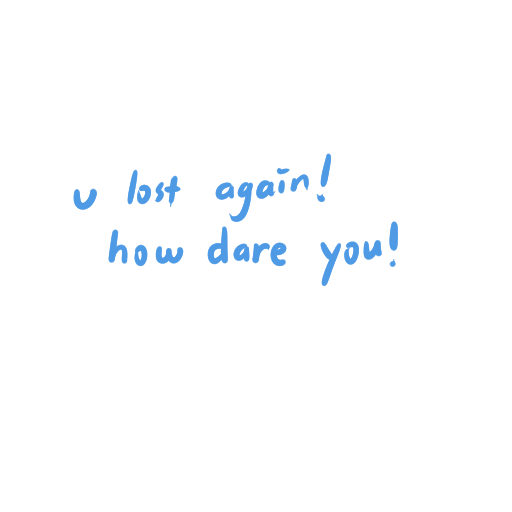 u lost again!
how dare you!